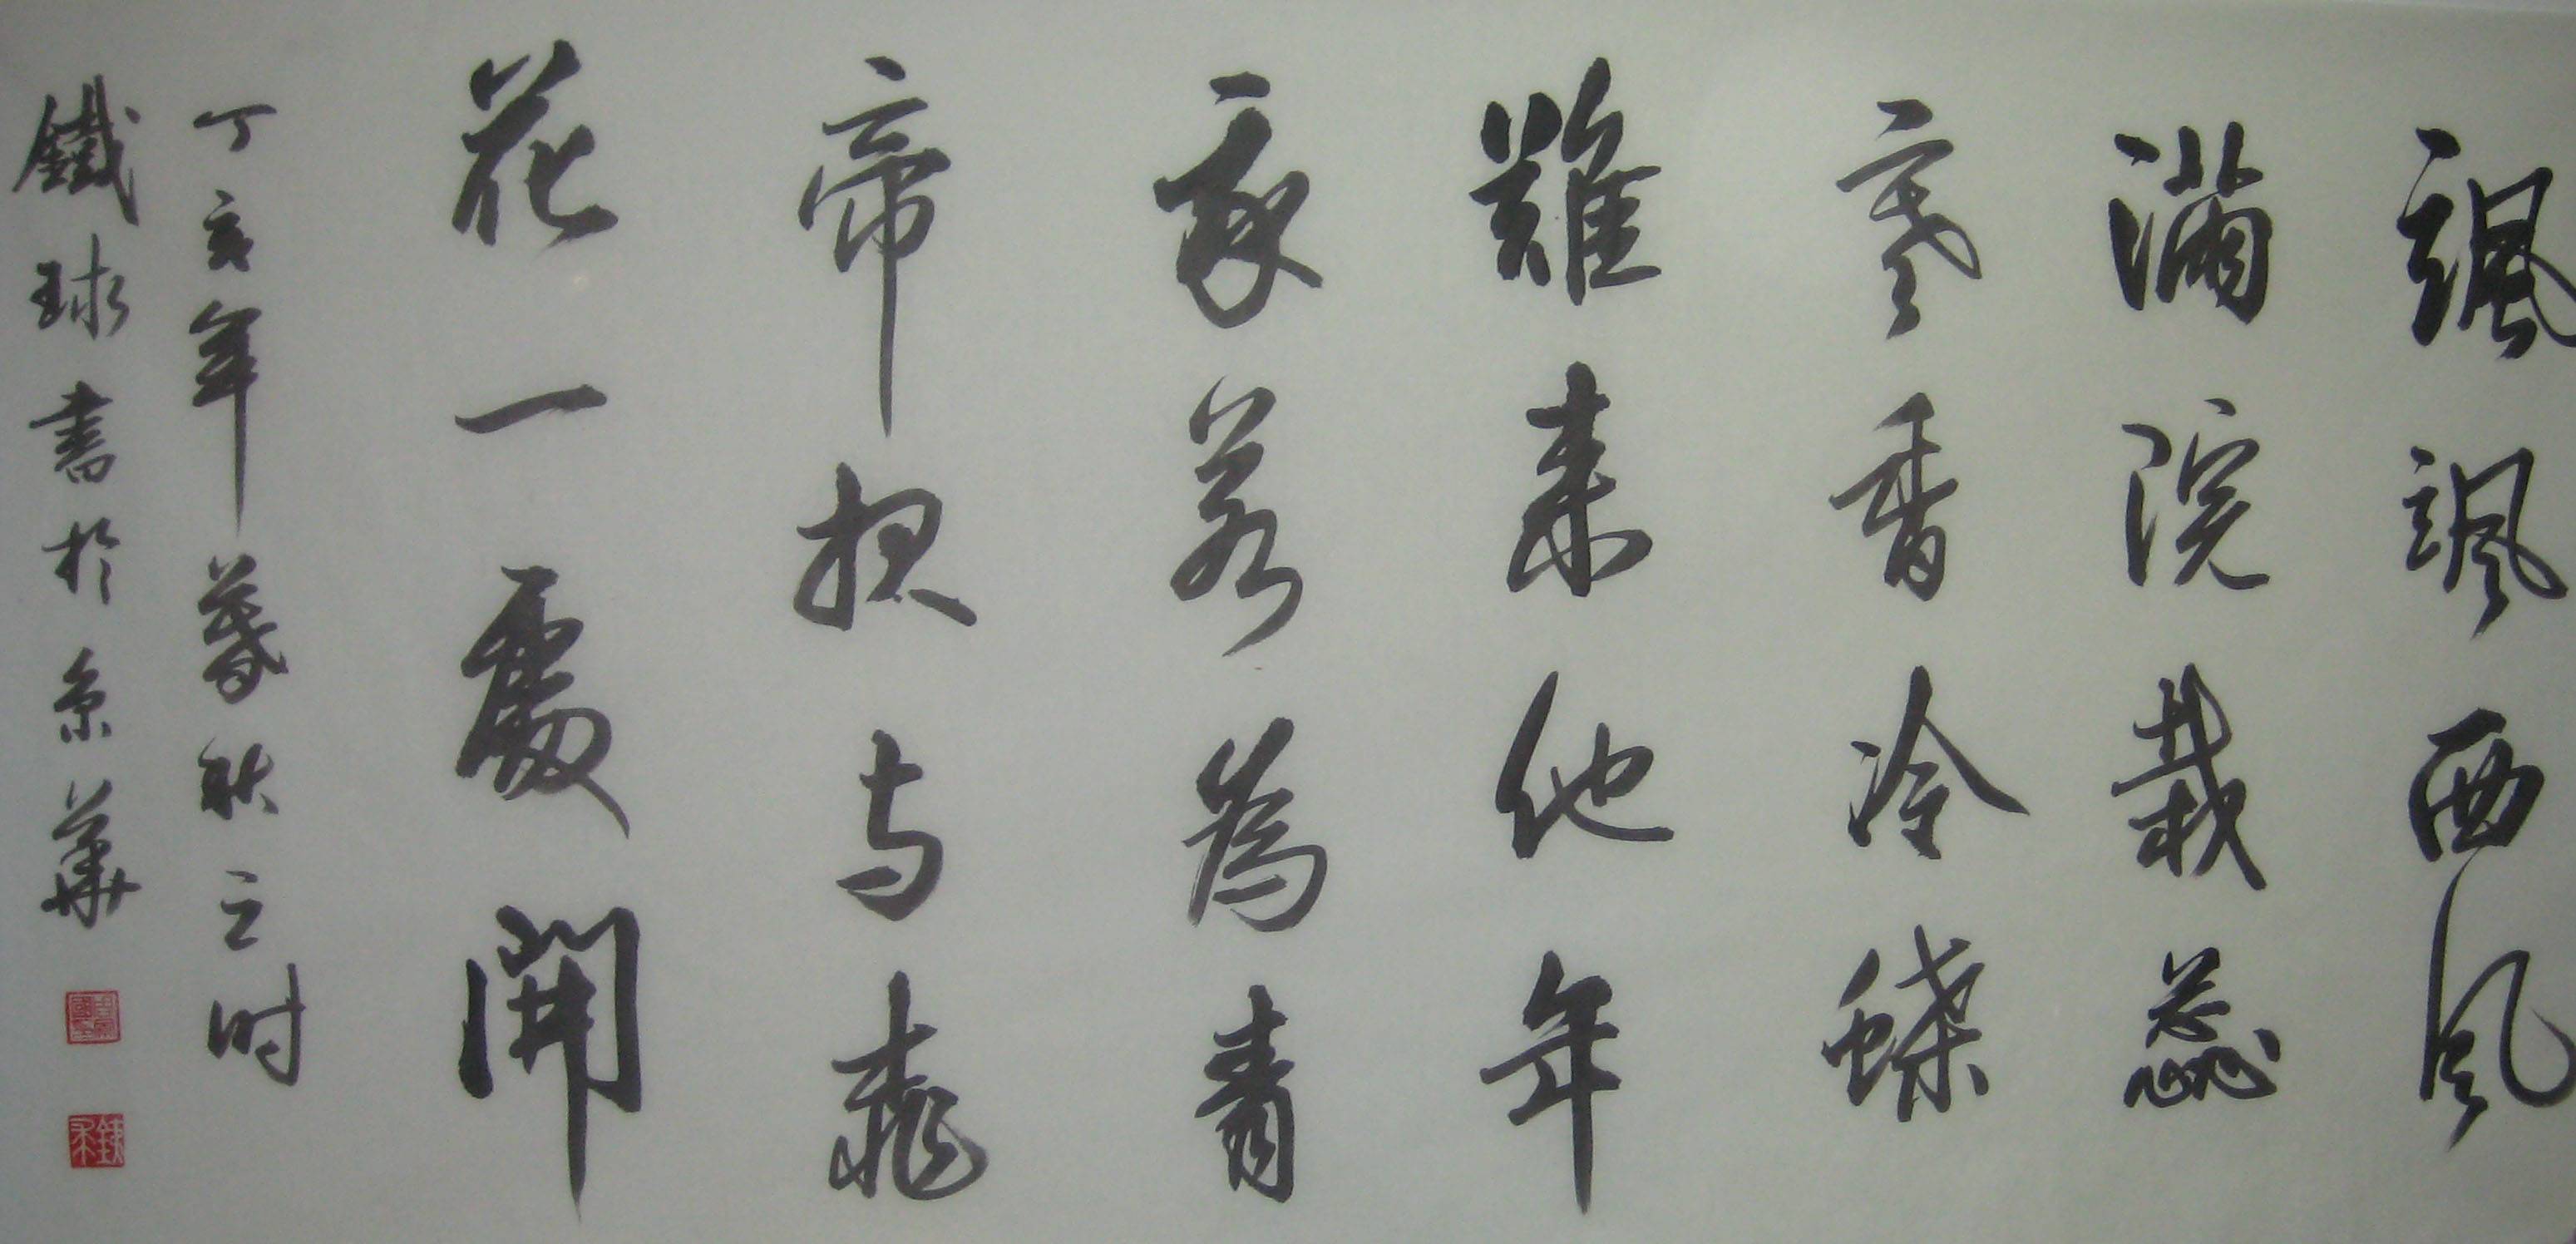 颯颯西风
滿院栽蕊
寒香冷蝶
難來他年
我若為青
帝报与桃
花一處開
丁亥年暮秋之时
鐵球書於京華